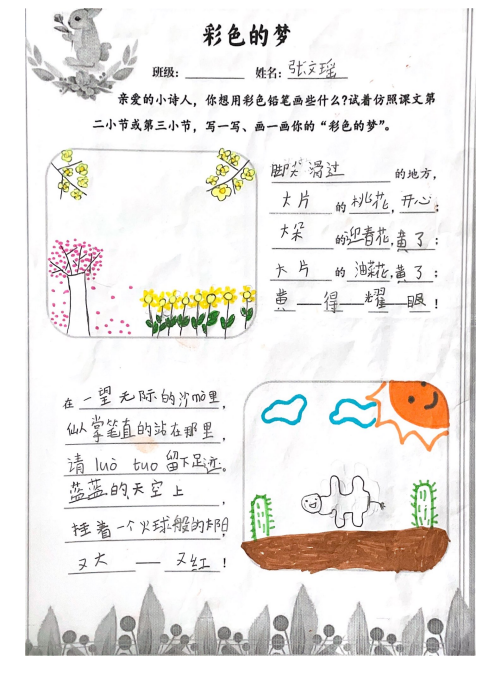 彩色的梦
班级：________ 姓名：张文瑶
亲爱的小诗人，你想用彩色铅笔画些什么？试着仿照课文第
二小节或第三小节，写一写、画一画你的“彩色的梦”。
脚尖滑过的地方，
大片的桃花，开心；
大朵的迎春花，黄了；
大片的油菜花，黄了；
黄——得——耀——眼！
在一望无际的沙mò里，
仙人掌笔直的站在那里，
请luò tuo留下足迹。
蓝蓝的天空上，
挂着一个火球般的
又大——又红！